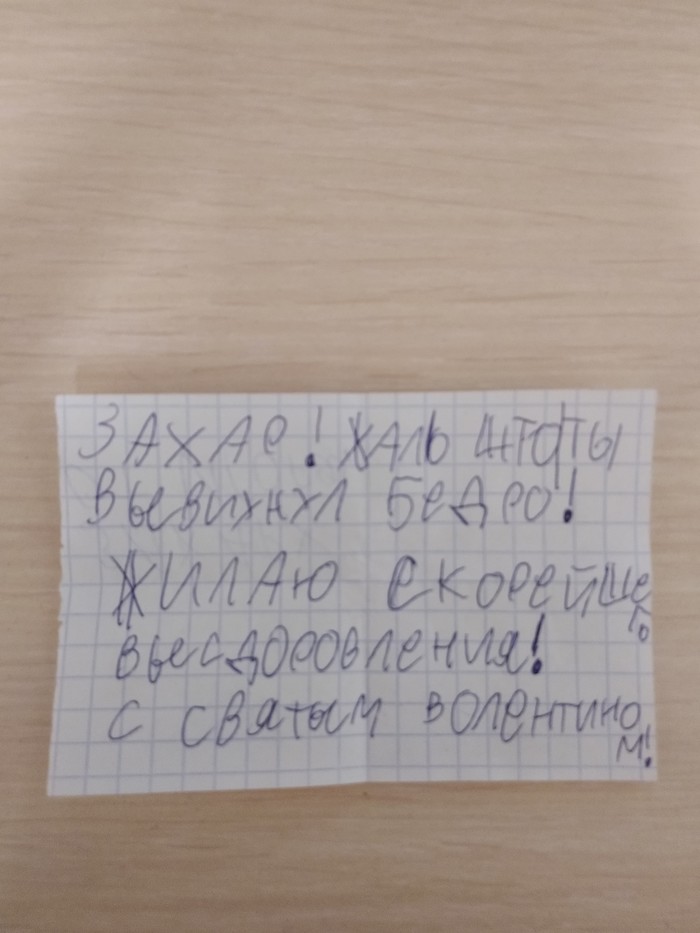 ЗАХАР! ЖАЛЬ ШТО ТЫ
ВЫВИХНУЛ БЕДРО!
ЖИЛАЮ СКОРЕЙШЕ
ГО
ВЫСДОРОВЛЕНИЯ!
С СВЯТЫМ ВОЛЕНТИНО
М!